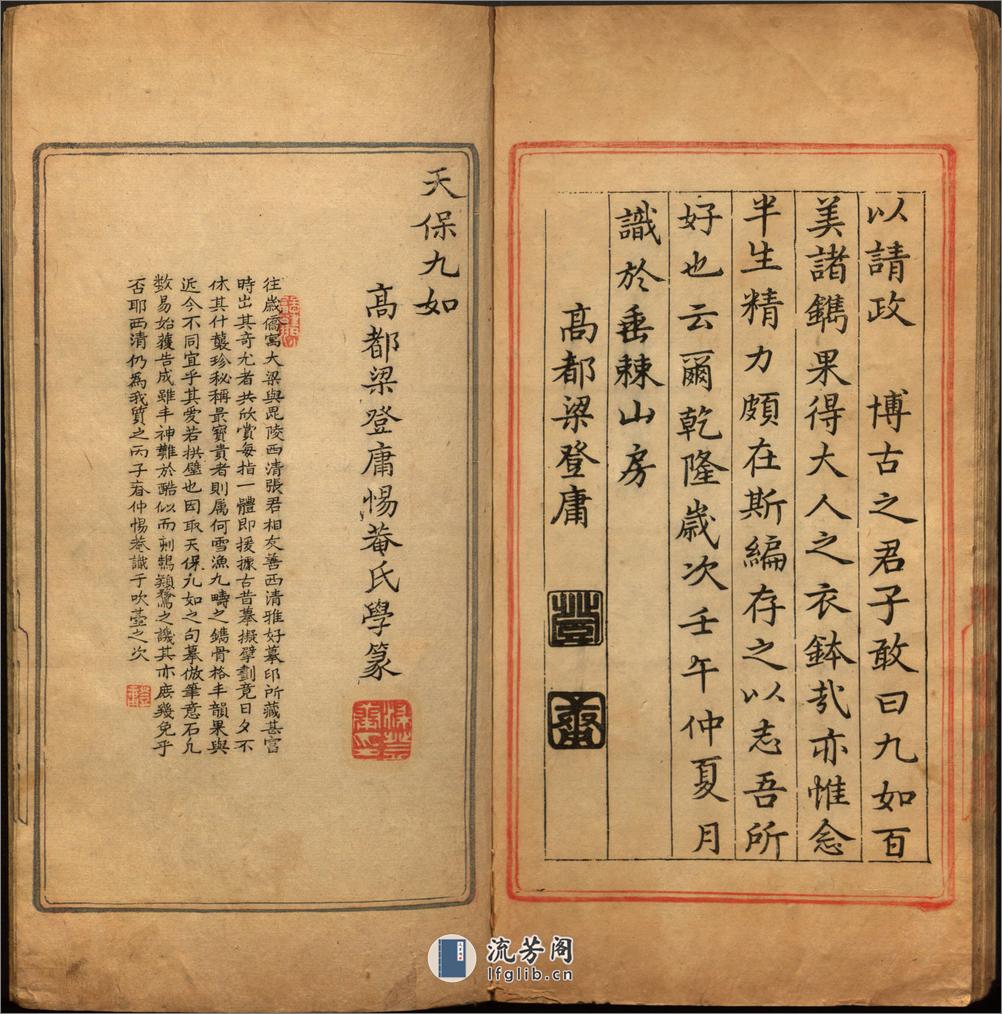 以請政　博古之君子敢曰九如百
美諸鐫果得大人之衣鉢哉亦惟念
半生精力頗在斯編存之以志吾所
好也云爾乾隆歲次壬午仲夏月
識於垂棘山房
高都梁登庸
登
庸
天保九如
高都梁登庸惕菴氏學篆
梁登庸印
往歲僑寓大梁與毘陵西清張君相友善西清雅好摹印所藏甚富
時出其奇尤者共欣賞每指一體即援據古昔摹擬擘劃竟日夕不
休其什襲珍秘稱最寶貴者則属何雪漁九疇之鐫骨格丰韻果與
近今不同宜乎其愛若拱璧也因取天保九如之句摹倣筆意石凡
数易始獲告成雖丰神難於酷似而刻鵠類鶩之譏其亦庶幾免乎
否耶西清仍為我質之丙子春仲惕菴識于吹藜之次
登庸
流芳阁
lfglib.cn